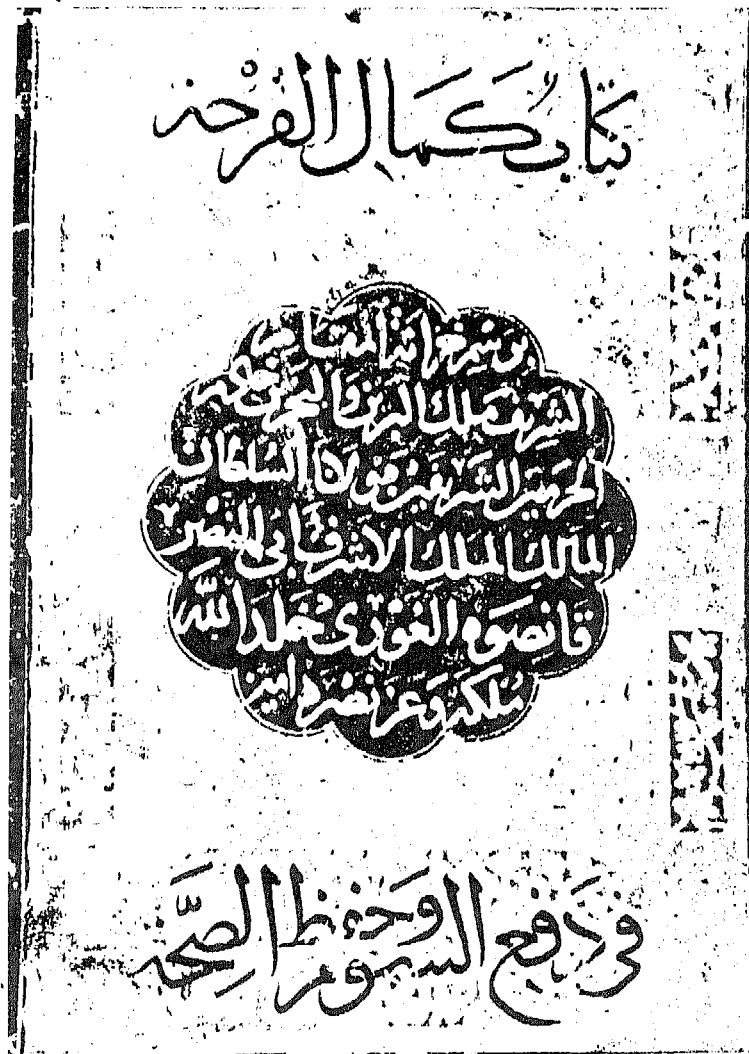 كتاب كمال الفرحه
برسم خزانة المقام
الشريف ملك البرين والبحرين خادم
الحرمين الشريفين مولانا السلطان
المالك الملك الأشرف أبي النصر
قانصوه الغوري خلد الله
ملكه وعز نصره امين
في دفع السموم وحفظ الصحه